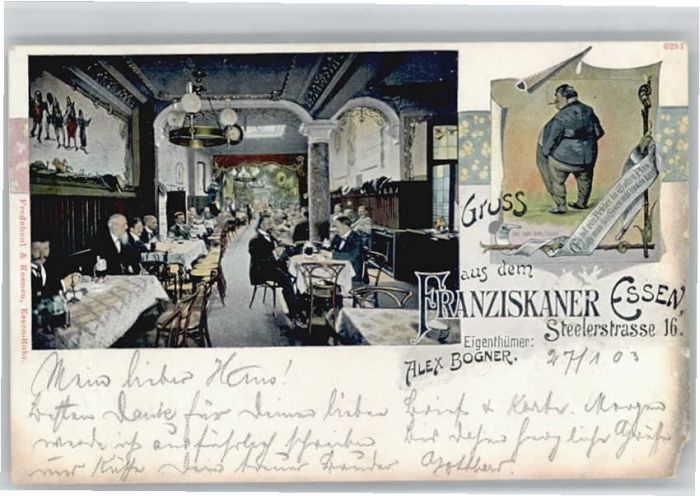 6284
Gruss
aus dem
FRANZISKANER ESSEN,
Steelerstrasse 16.
Eigenthümer:
ALEX BOGNER.
Fredebeul & Koenen, Essen-Ruhr.
27/1 03
Mein lieber Hans!
Besten Dank für Deinen lieben Brief & Karte. Morgen
werde ich ausführlich schreiben bis dahin herzliche Grüße
und Küsse Dein treuer Bruder